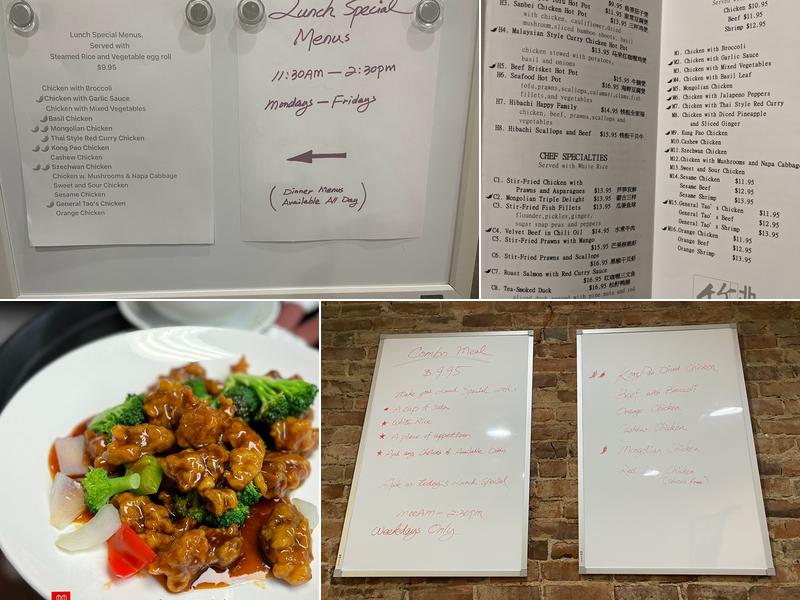 Lunch Special Menus.
Served with
Steamed Rice and Vegetable egg roll
$9.95
Chicken with Broccoli
Chicken with Garlic Sauce
Chicken with Mixed Vegetables
Basil Chicken
Mongolian Chicken
Thai Style Red Curry Chicken
Kong Pao Chicken
Cashew Chicken
Szechwan Chicken
Chicken w. Mushrooms & Napa Cabbage
Sweet and Sour Chicken
Sesame Chicken
General Tao's Chicken
Orange Chicken
Lunch Special
Menus
11:30AM — 2:30pm
Mondays — Fridays
(Dinner Menus
Available All Day)
Hot Pot $9.95
H3. Sanbei Chicken Hot Pot $11.95
with chicken, cauliflower, dried $13.95
mushroom, sliced bamboo shoots, basil
H4. Malaysian Style Curry Chicken Hot Pot
$13.95
chicken stewed with potatoes,
basil and onions
H5. Beef Brisket Hot Pot $15.95
H6. Seafood Hot Pot $16.95
tofu, scallops, calamari, clams, fish
fillets, and vegetables
H7. Hibachi Happy Family $14.95
chicken, beef, prawns, scallops and
vegetables
H8. Hibachi Scallops and Beef $15.95
CHEF SPECIALTIES
Served with White Rice
C1. Stir-Fried Chicken with
Prawns and Asparagus $13.95
C2. Mongolian Triple Delight $13.95
C3. Stir-Fried Fish Fillets $13.95
flounder, pickles, ginger,
sugar snap peas and peppers
C4. Velvet Beef in Chili Oil $14.95
C5. Stir-Fried Prawns with Mango
$15.95
C6. Stir-Fried Prawns and Scallops
$16.95
C7. Roast Salmon with Red Curry Sauce
$16.95
C8. Tea-Smoked Duck $16.95
sliced duck served with pine nuts and red
Chicken $10.95
Beef $11.95
Shrimp $12.95
M1. Chicken with Broccoli
M2. Chicken with Garlic Sauce
M3. Chicken with Mixed Vegetables
M4. Chicken with Basil Leaf
M5. Mongolian Chicken
M6. Chicken with Jalapeno Peppers
M7. Chicken with Thai Style Red Curry
M8. Chicken with Diced Pineapple
and Sliced Ginger
M9. Kong Pao Chicken
M10. Cashew Chicken
M11. Szechwan Chicken
M12. Chicken with Mushrooms and Napa Cabbage
M13. Sweet and Sour Chicken
M14. Sesame Chicken $11.95
Sesame Beef $12.95
Sesame Shrimp $13.95
M15. General Tao's Chicken $11.95
General Tao's Beef $12.95
General Tao's Shrimp $13.95
M16. Orange Chicken $11.95
Orange Beef $12.95
Orange Shrimp $13.95
Combo Meal
$9.95
Make your Lunch Special
★ A cup of soda
★ White Rice
★ A piece of appetizer
★ And any Choices of Available Dishes
Ask us Today's Lunch Special
11:00AM — 2:30pm
Weekdays Only
Kong Pao Diced Chicken
Beef with Broccoli
Orange Chicken
Cashew Chicken
Mongolian Chicken
Red Chicken